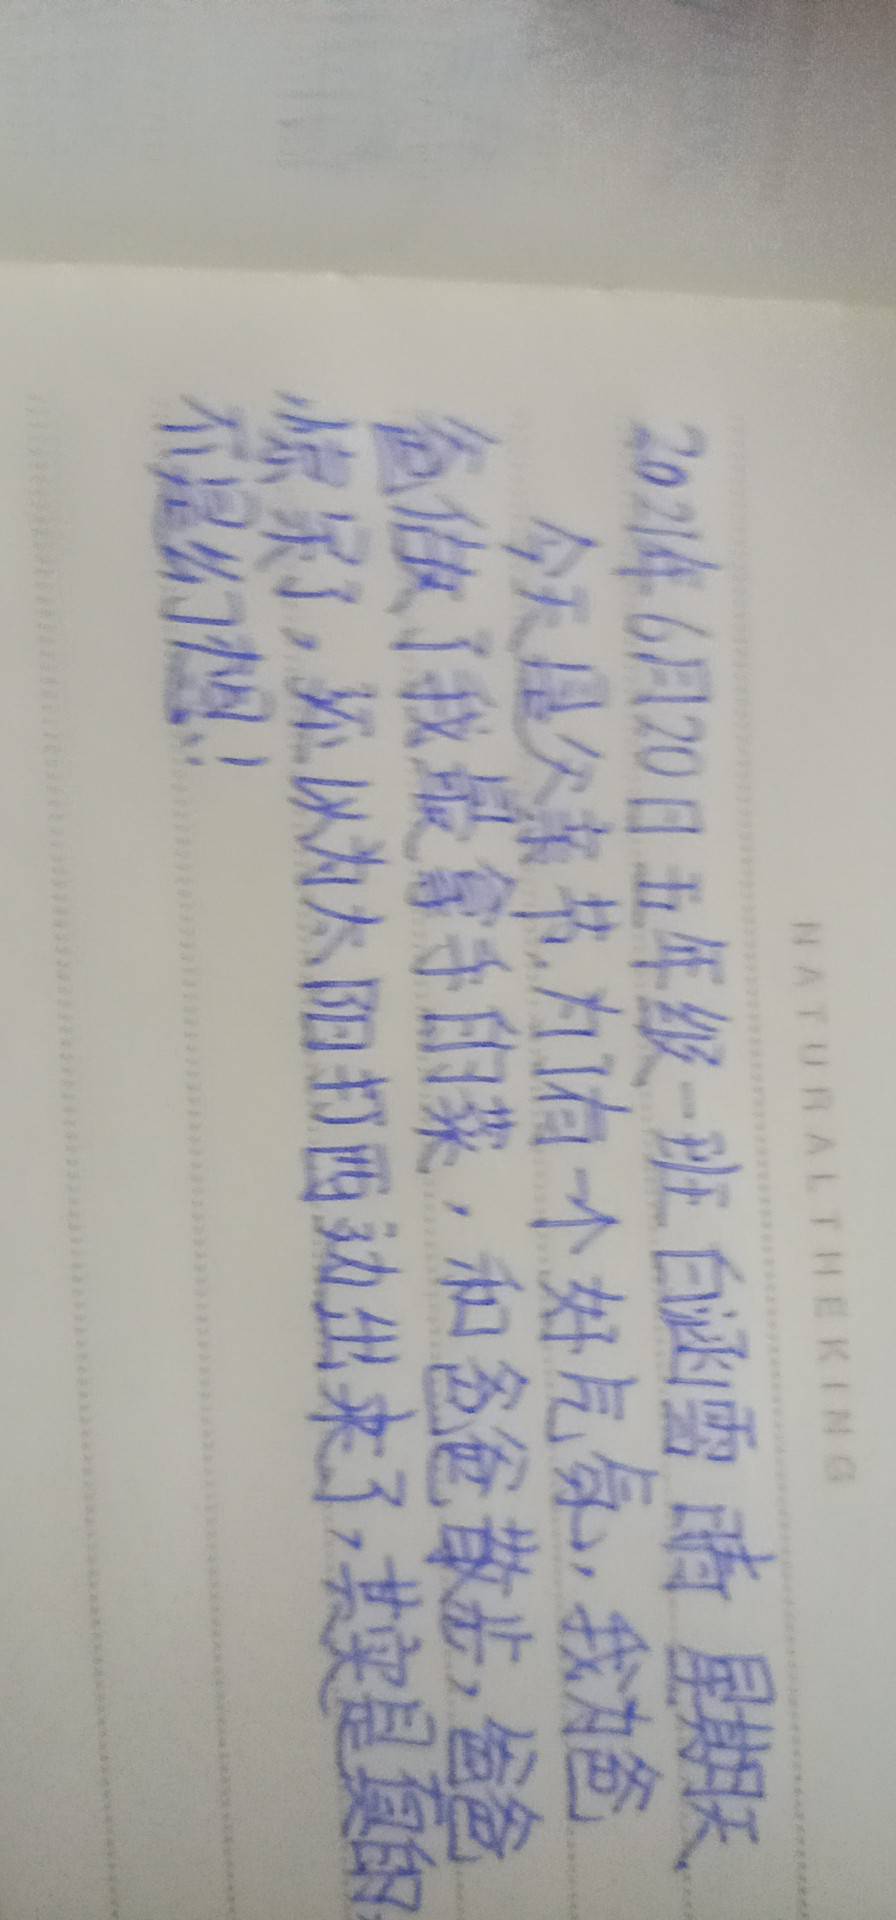 NATURALTHEKING
2021年6月20日五年级一班白涵雪 晴 星期天
今天是父亲节,为有一个好气氛,我为爸
爸做了我最拿手的菜,和爸爸散步,爸爸
惊呆了,还以为太阳打西边出来了,其实是真的,
不是幻想!